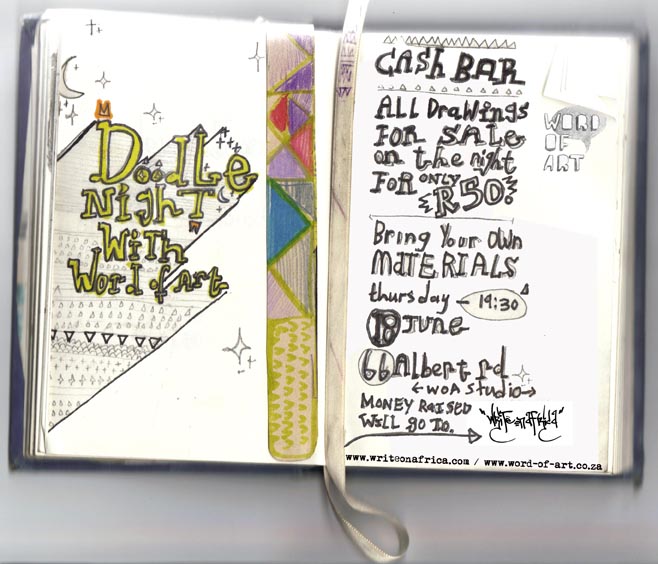 Doodle
Night
With
Word of Art
CASH BAR
ALL DraWings
FOR SALe
on the night
FOR ONLY
R50!
WORD
OF
ART
Bring Your Own
MaTERIALS
thursday - 19:30
18 June
66 Albert rd
←WOA Studio→
MONEY RaiSED
Will go to.
"WriteonAfrica"
www.writeonafrica.com / www.word-of-art.co.za